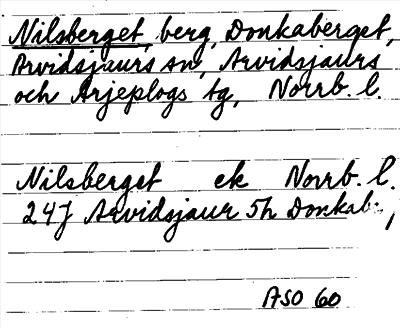 Nilsberget, berg, Donkaberget,
Arvidsjaurs sn, Arvidsjaurs
och Arjeplogs tg, Norrb. l.
Nilsberget ek Norrb. l.
24J Arvidsjaur 5h Donkab.,
ASO 60